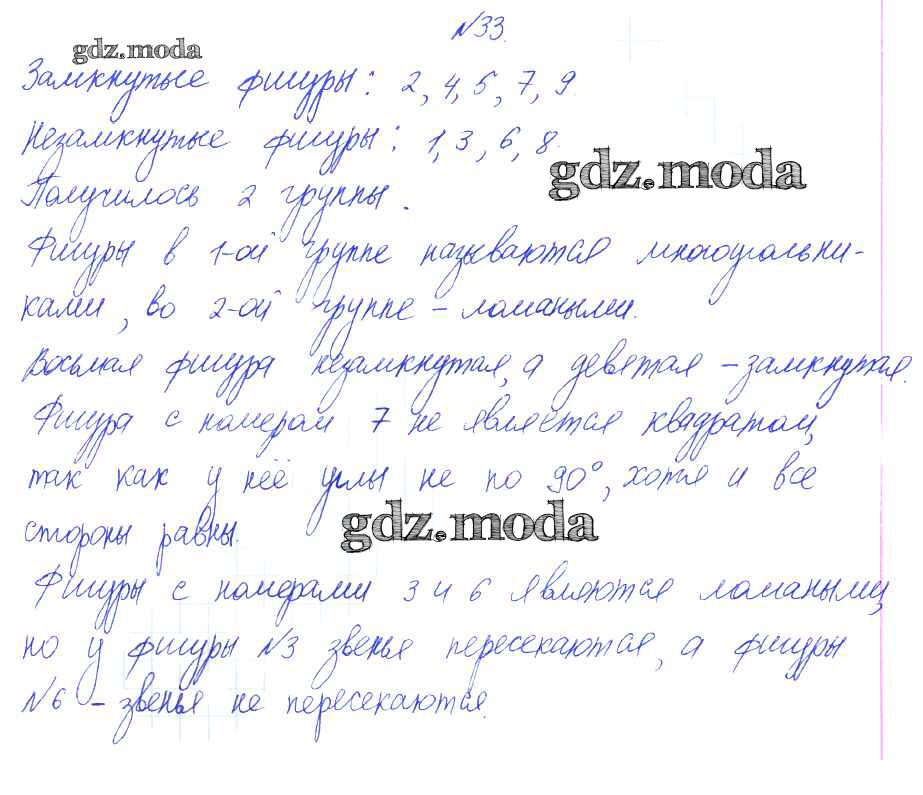 №33.
gdz.moda
Замкнутые фигуры: 2, 4, 5, 7, 9
Незамкнутые фигуры: 1, 3, 6, 8.
gdz.moda
Получилось 2 группы.
Фигуры в 1-ой группе называются многоугольни-
ками, во 2-ой группе - ломаными.
Восьмая фигура незамкнутая, а девятая - замкнутая.
Фигура с номером 7 не является квадратом,
так как у неё углы не по 90°, хотя и все
стороны равны.
gdz.moda
Фигуры с номерами 3 и 6 являются ломаными,
но у фигуры №3 звенья пересекаются, а фигуры
№6 - звенья не пересекаются.